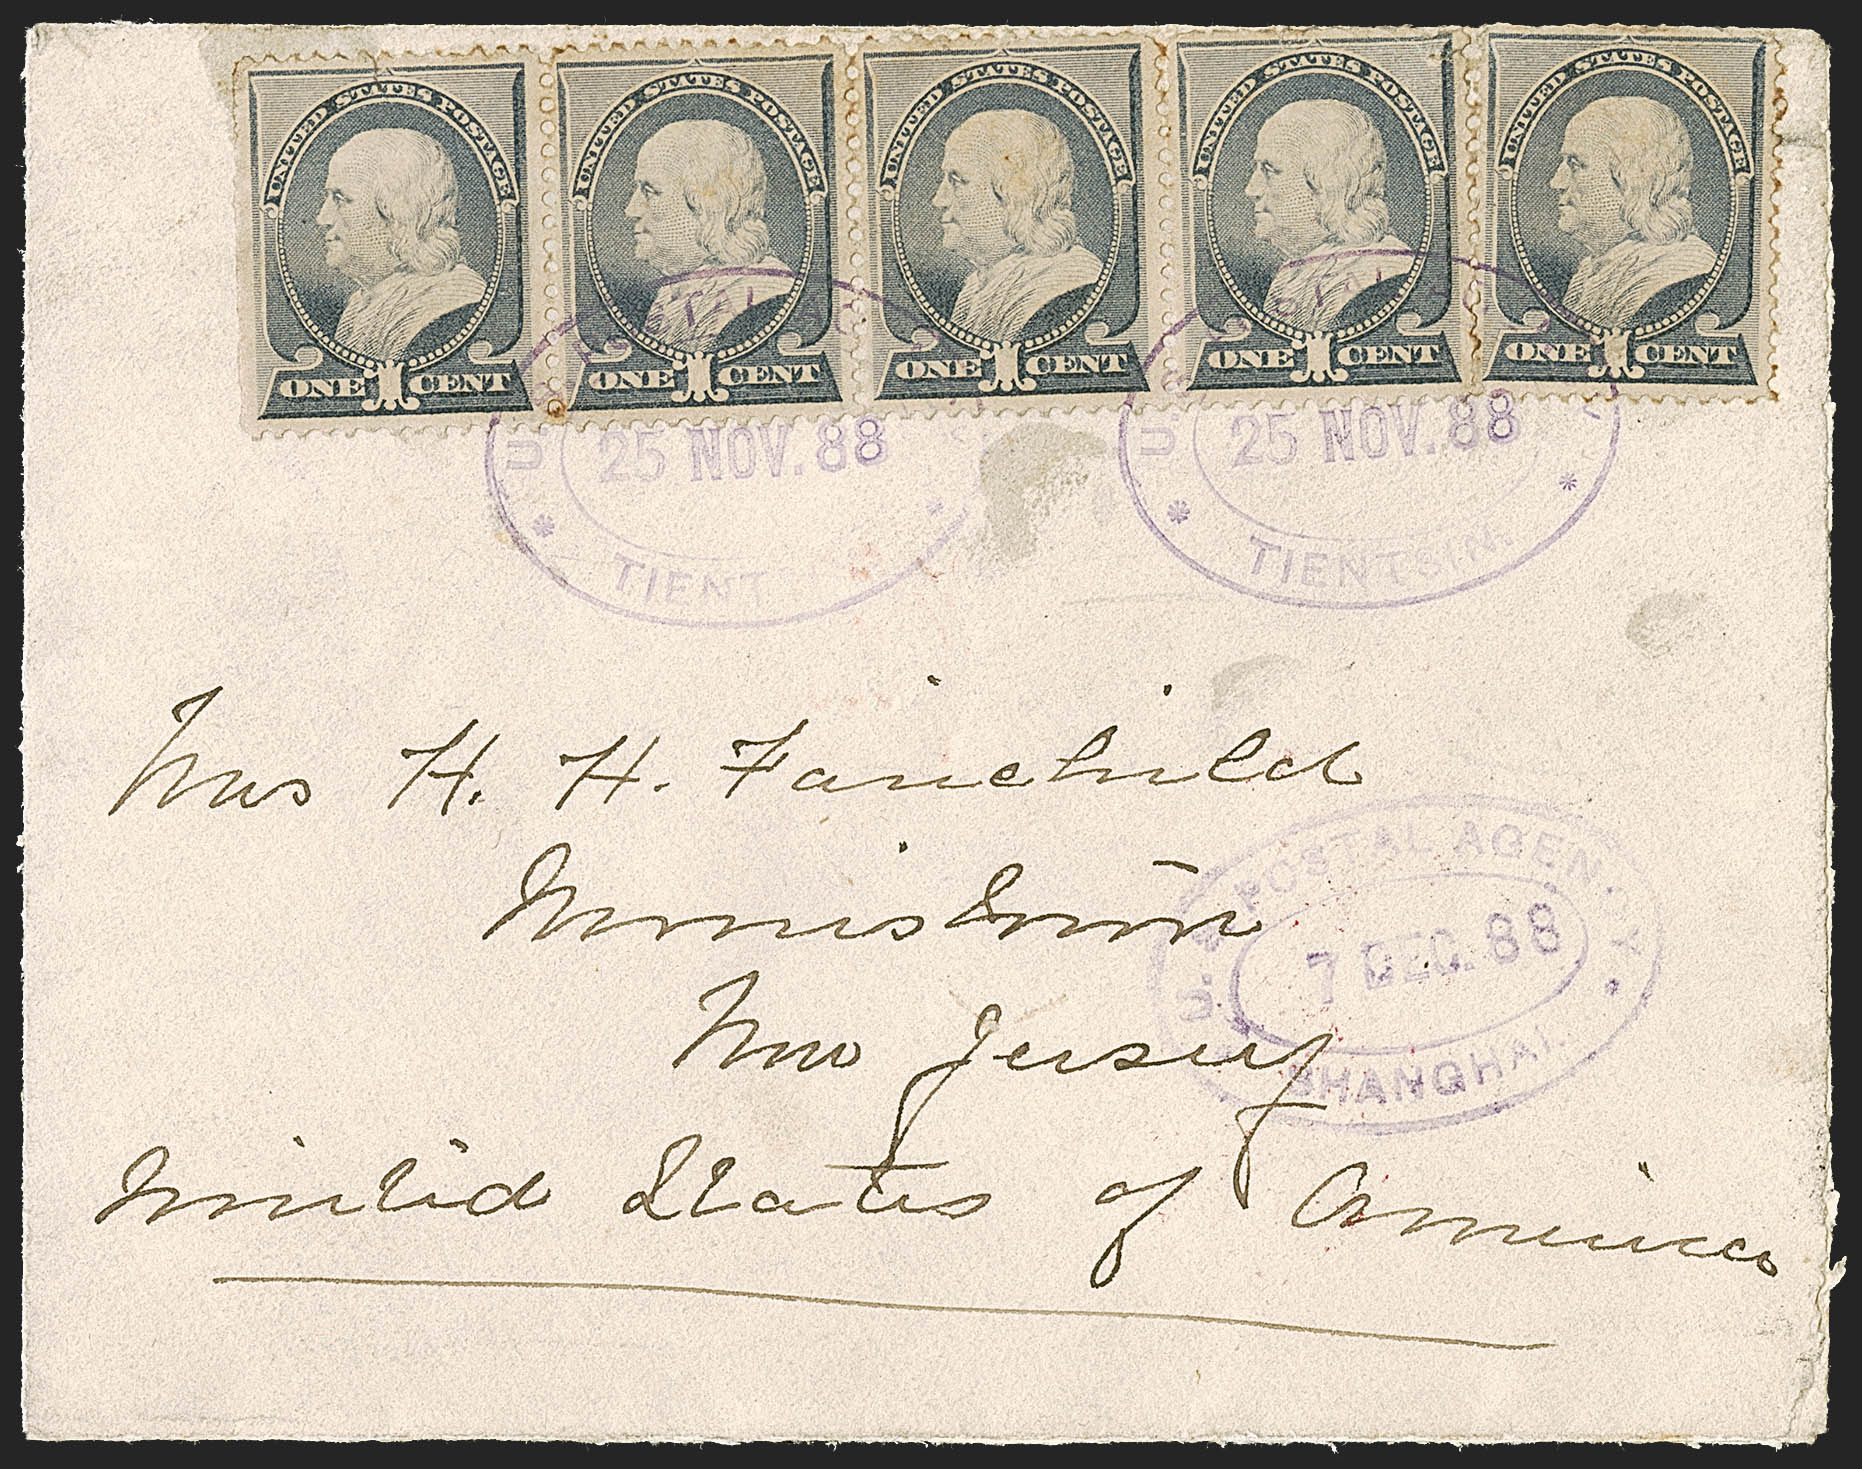 UNITED STATES POSTAGE UNITED STATES POSTAGE UNITED STATES POSTAGE UNITED STATES POSTAGE UNITED STATES POSTAGE
ONE 1 CENT ONE 1 CENT ONE 1 CENT ONE 1 CENT ONE 1 CENT
U POSTAL
25 NOV. 88
* TIENT *
U POSTAL
25 NOV. 88
* TIENTSIN. *
Mrs H. H. Fairchild
Morristown
New Jersey
United States of America
U.S. POSTAL AGENCY
7 DEC. 88
SHANGHAI.